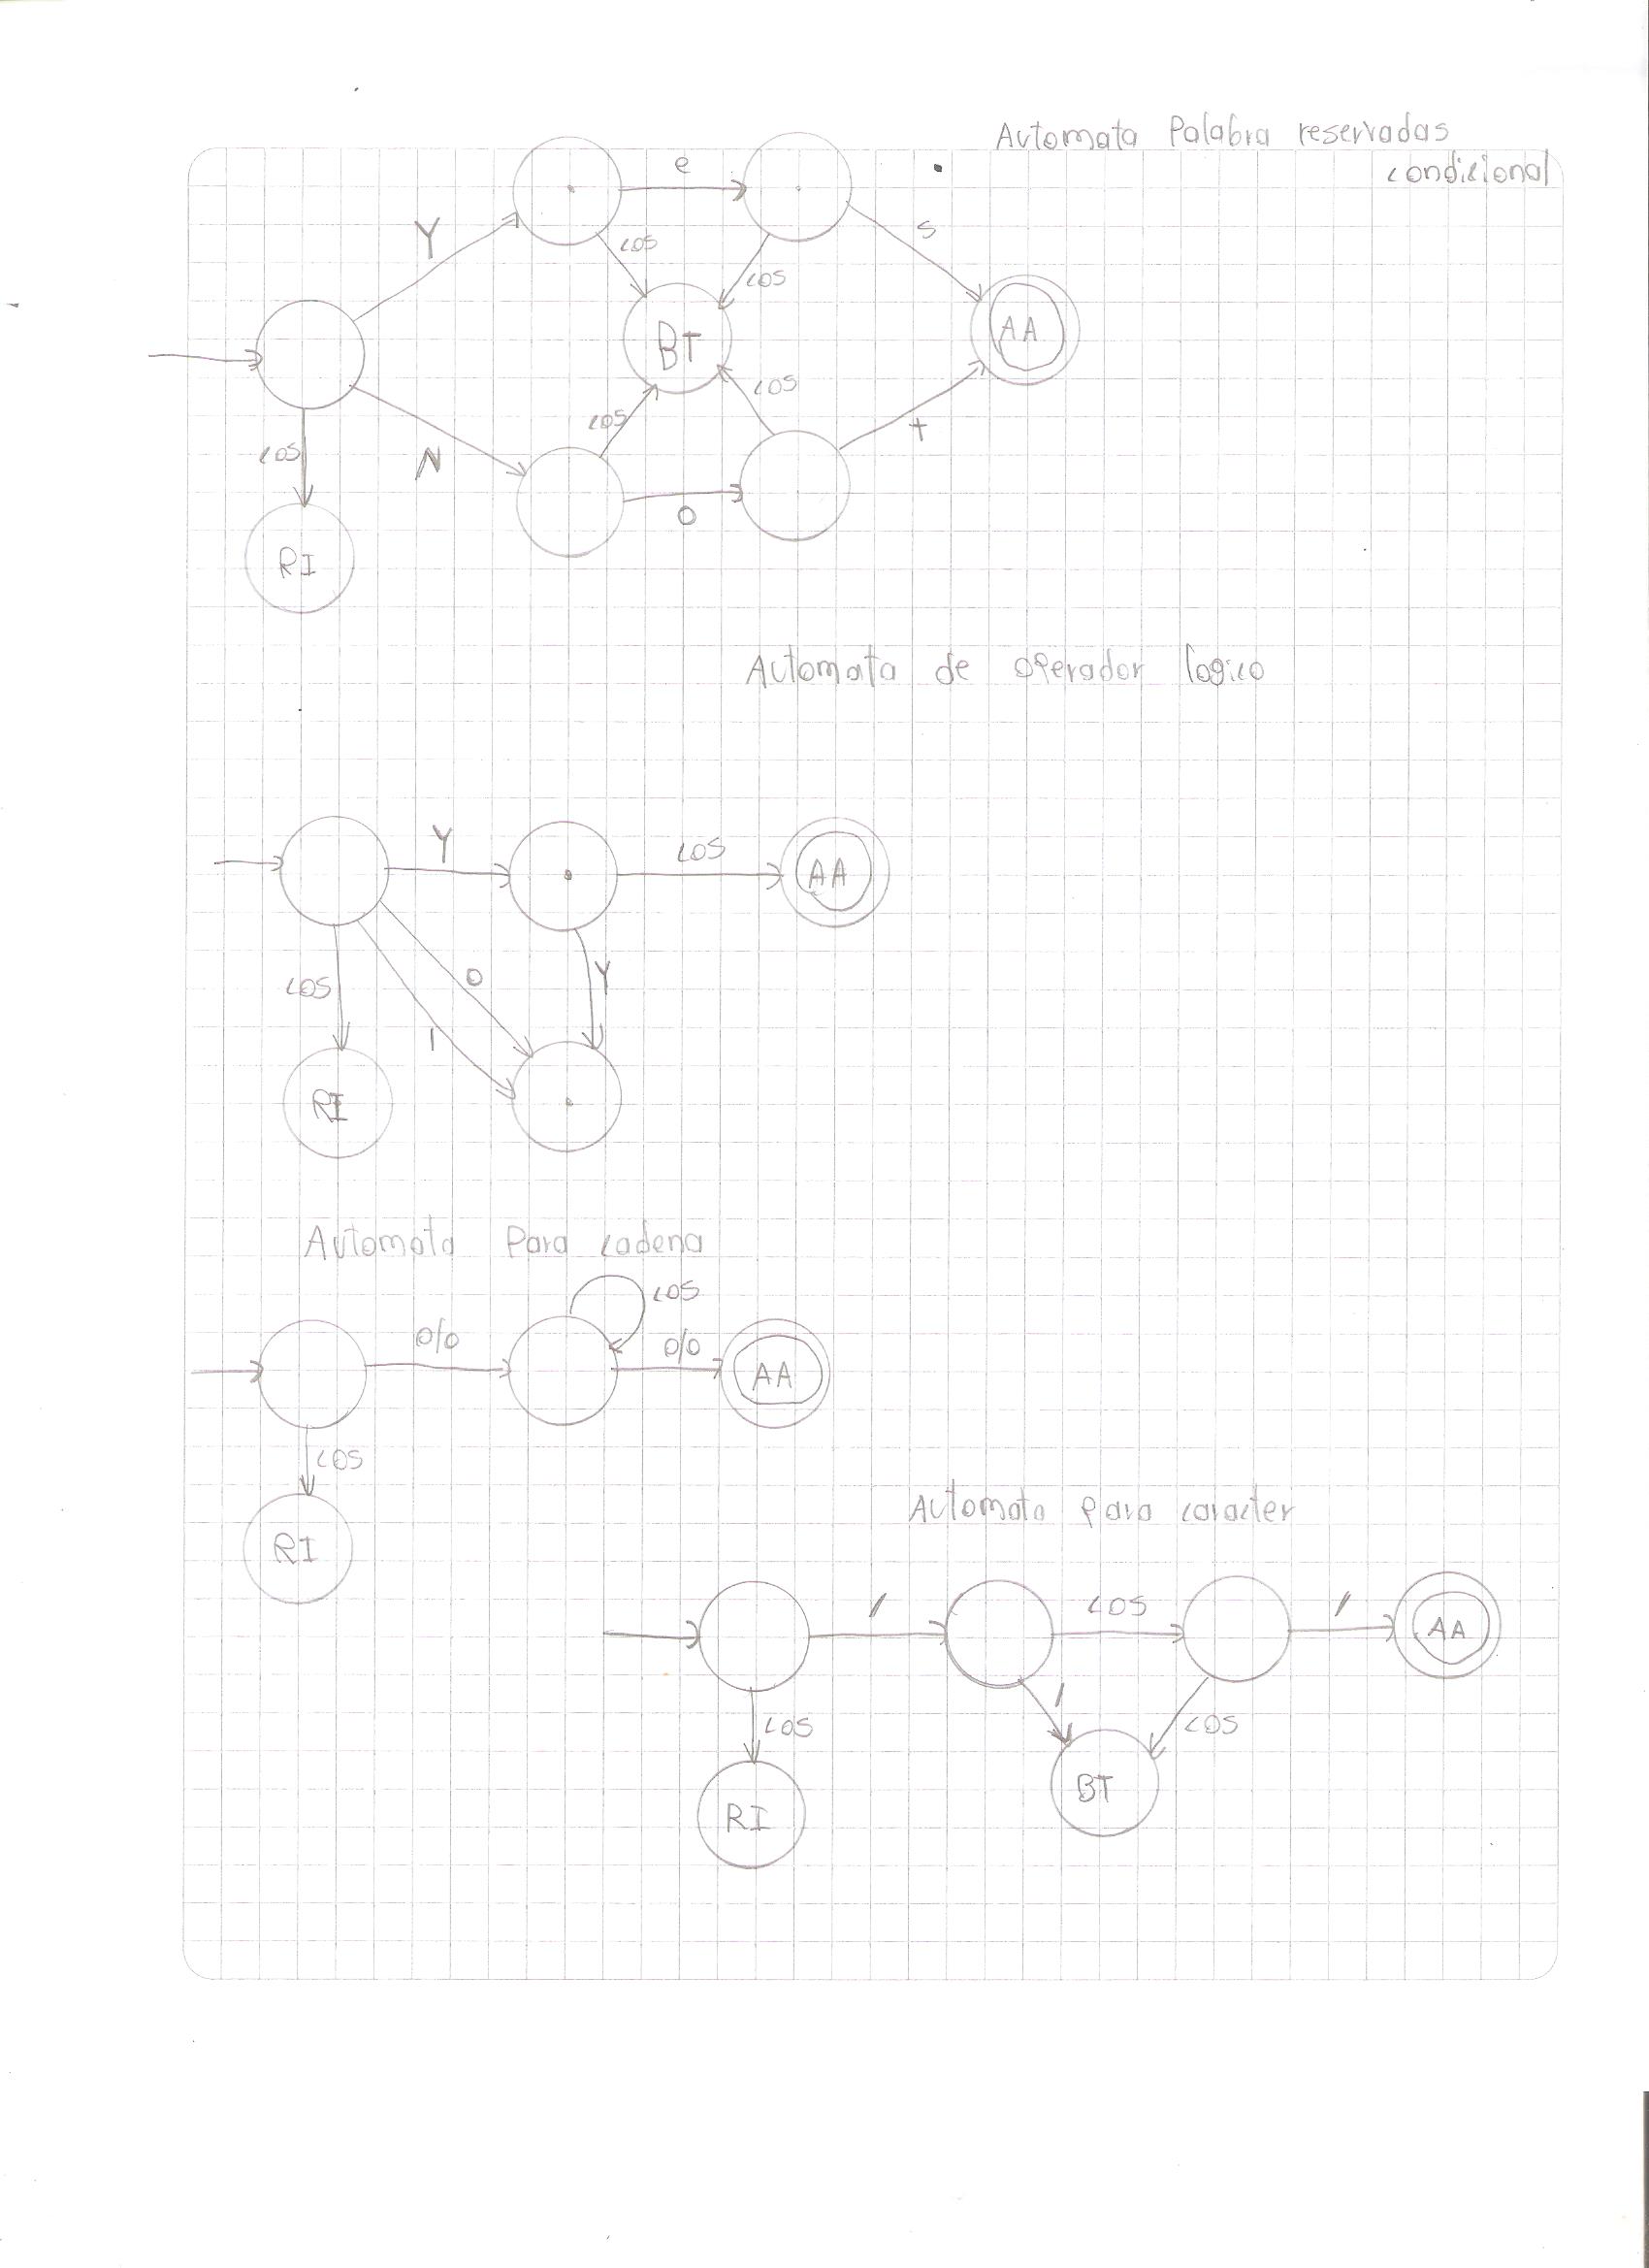 Automata Palabra reservadas
condicional
e
Y
cos
s
cos
BT
AA
cos
cos
cos
N
t
o
RI
Automata de operador logico
Y
cos
AA
o
Y
cos
|
RI
Automata Para cadena
cos
o/o
o/o
AA
cos
RI
Automata para caracter
'
cos
'
AA
'
cos
cos
BT
RI